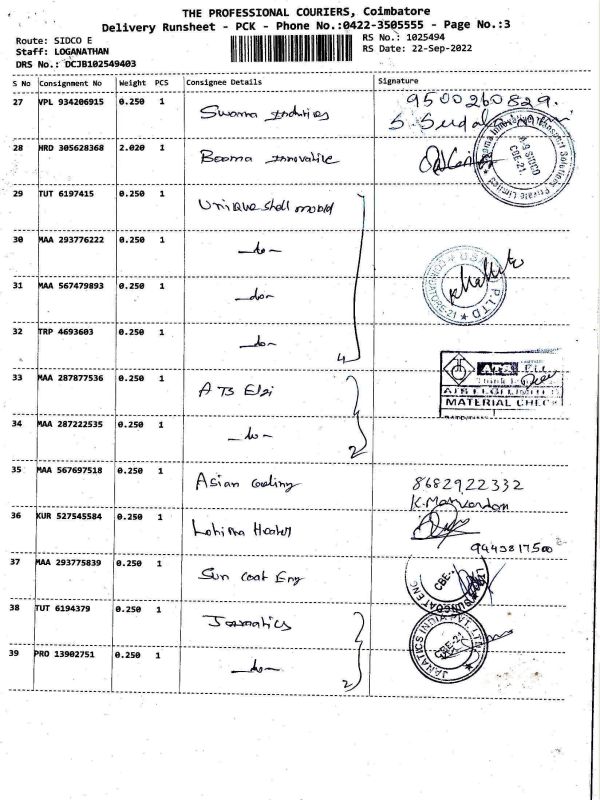 THE PROFESSIONAL COURIERS, Coimbatore
Delivery Runsheet - PCK - Phone No.:0422-3505555 - Page No.:3
Route: SIDCO E
RS No.: 1025494
Staff: LOGANATHAN
RS Date: 22-Sep-2022
DRS No.: DCJB102549403
S No Consignment No Weight PCS Consignee Details Signature
27 VPL 934206915 0.250 1 9500260829.
28 HRD 305628368 2.020 1 Booma Innovative
29 TUT 6197415 0.250 1 Unique Shell mould
30 MAA 293776222 0.250 1 -do-
31 MAA 567479893 0.250 1 -do-
32 TRP 4693603 0.250 1 -do- 4
33 MAA 287877536 0.250 1 ATS Elgi
MATERIAL CHECK
34 MAA 287222535 0.250 1 -do- 2
35 MAA 567697518 0.250 1 Asian Cooling 8682922332
36 KUR 527545584 0.250 1 Heater 9443817500
37 MAA 293775839 0.250 1 Sun Coat Eng CBE-
38 TUT 6194379 0.250 1 JANATICS INDIA PVT. LTD. CBE-21
39 PRO 13902751 0.250 1 -do- 2